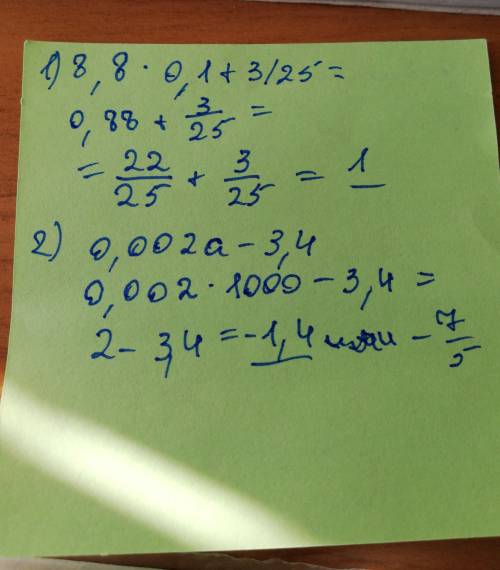 1) 8,8 · 0,1 + 3/25 =
0,88 + 3/25 =
= 22/25 + 3/25 = 1
2) 0,002a - 3,4
0,002 · 1000 - 3,4 =
2 - 3,4 = -1,4 или - 7/5